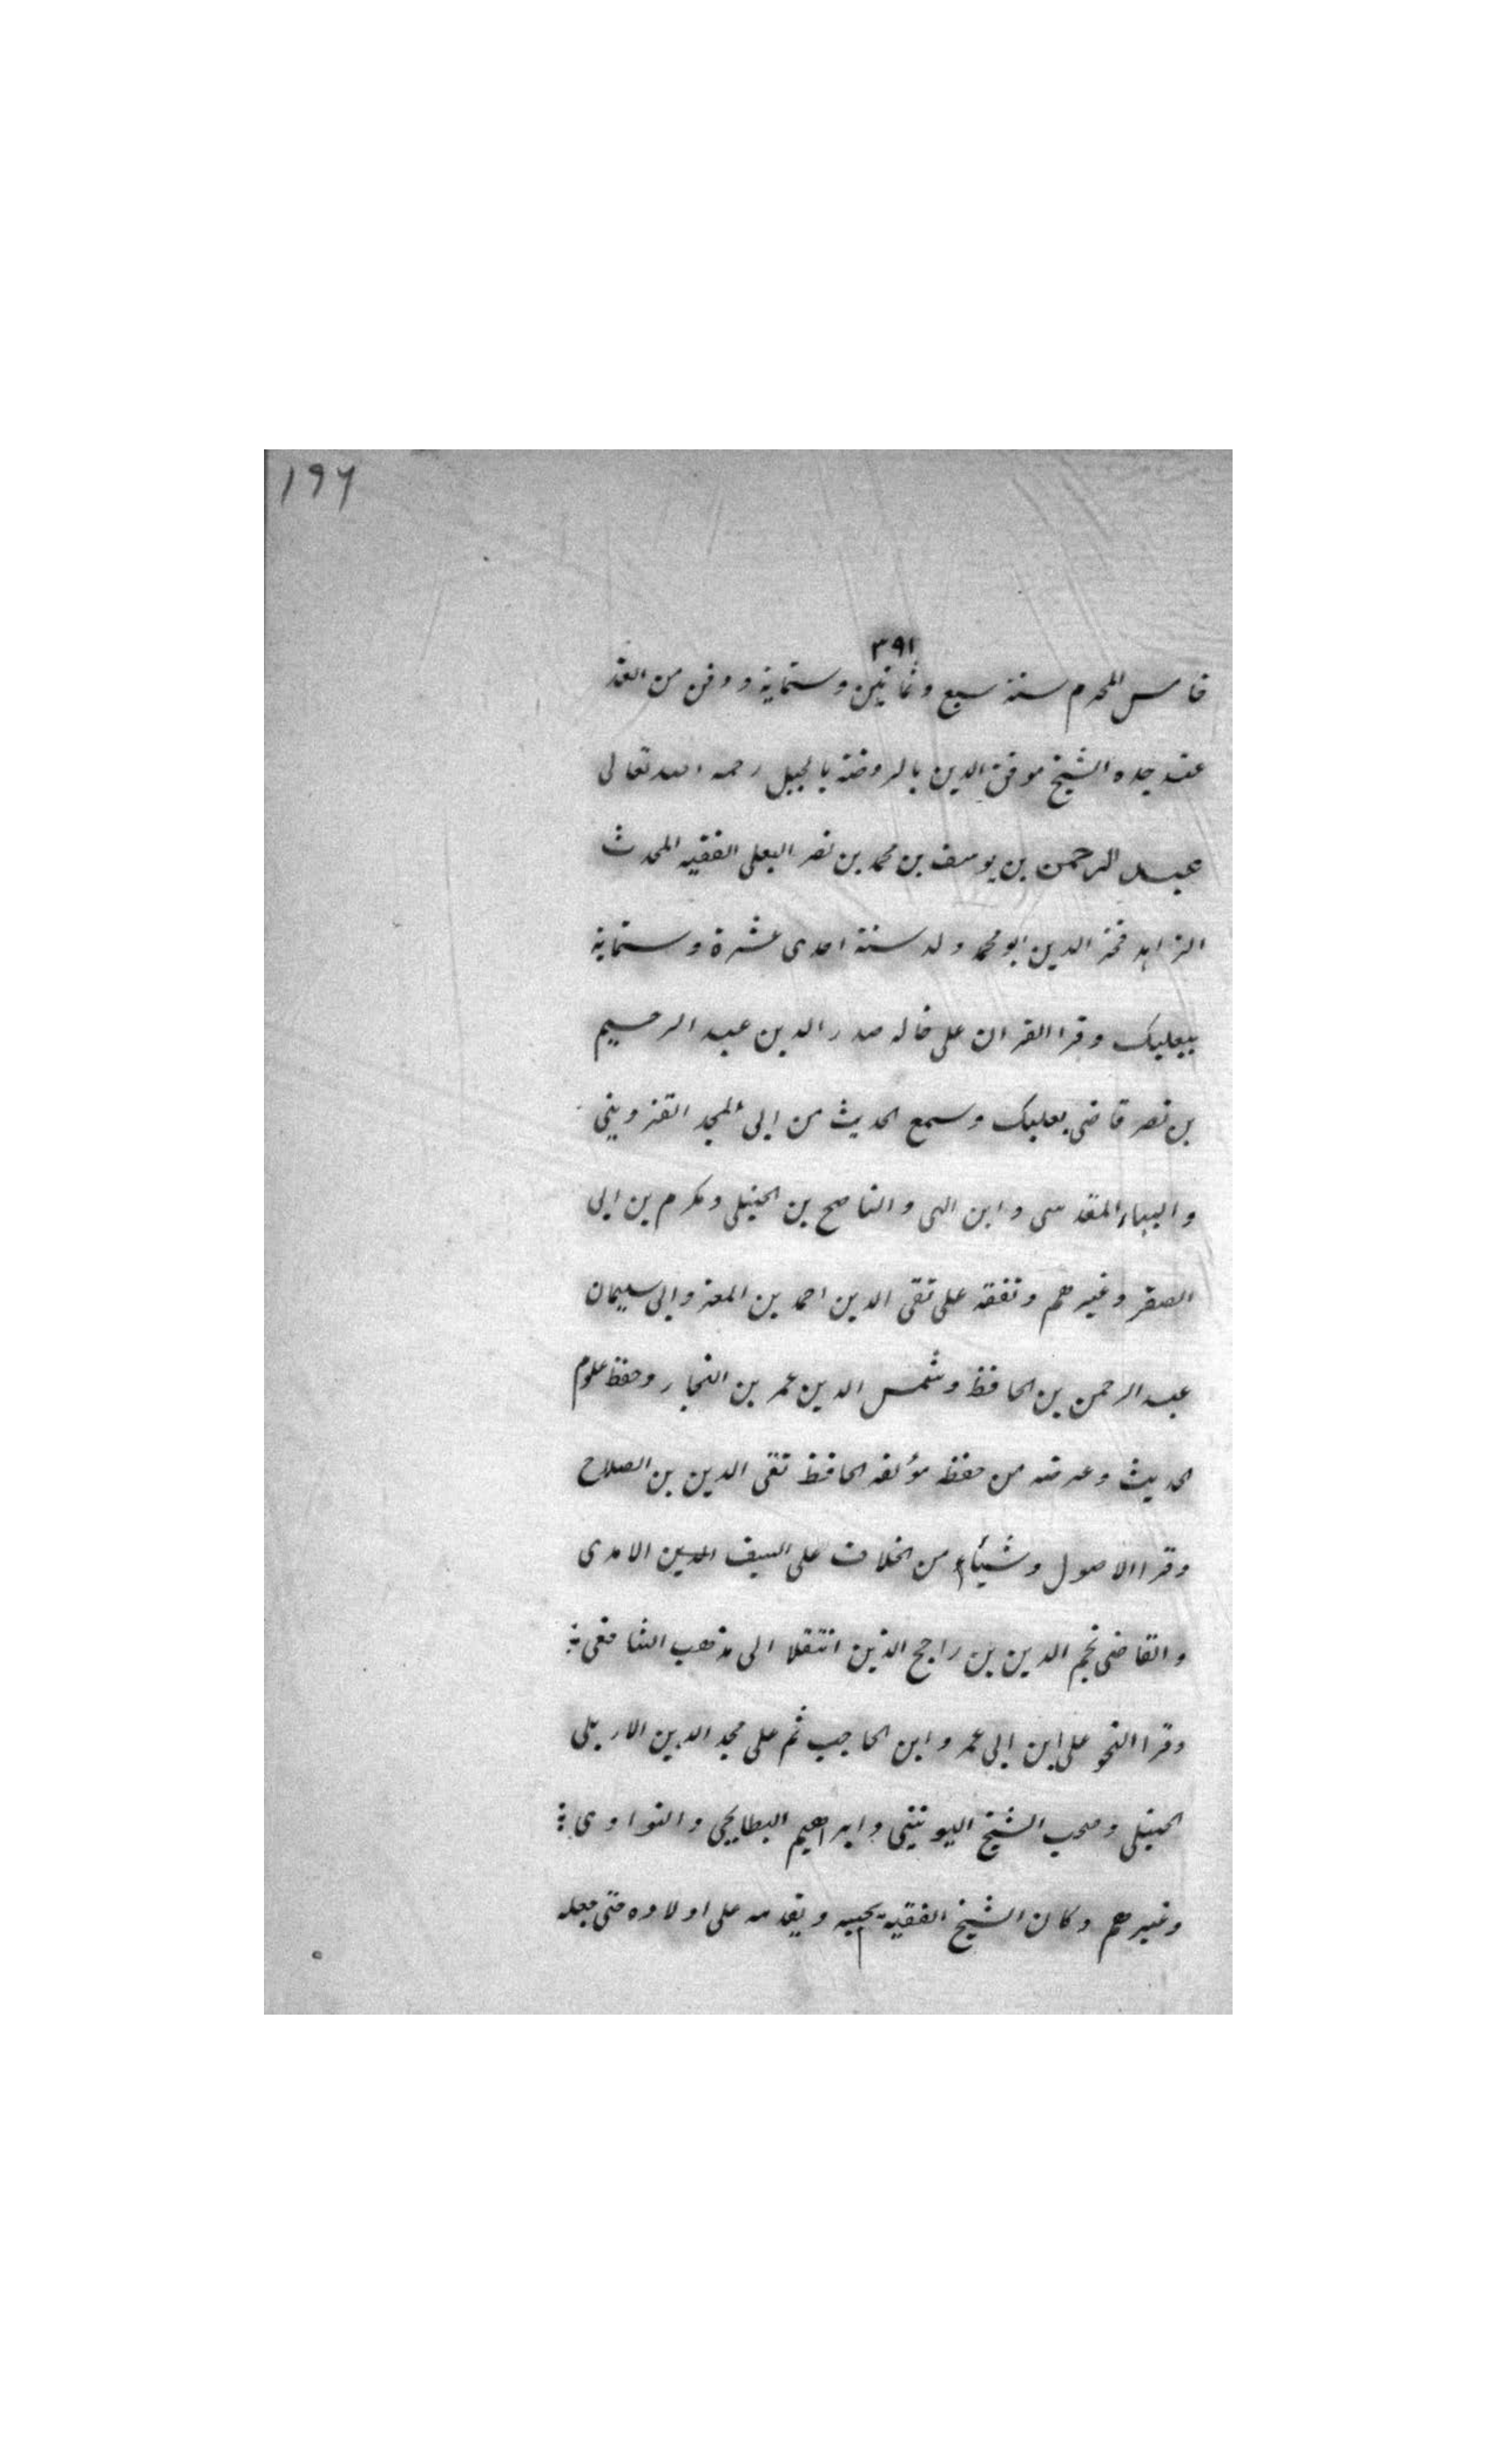 ١٩٦
٣٩١
خامس المحرم سنة سبع وثمانين وستماية ودفن من الغد
عند جده الشيخ موفق الدين بالروضة بالجبل رحمه الله تعالى
عبد الرحمن بن يوسف بن محمد بن نصر البعلى الفقيه المحدث
الزاهد فخر الدين ابو محمد ولد سنة احدى عشرة وستماية
ببعلبك وقرا القران على خاله صدر الدين عبد الرحيم
بن نصر قاضى بعلبك وسمع الحديث من ابى المجد القزوينى
والبهاء المقدسى وابن التى والناصح بن الحنبلى ومكرم بن ابى
الصقر وغيرهم وتفقه على تقى الدين احمد بن المعز وابى سليمان
عبد الرحمن بن الحافظ وشمس الدين عمر بن النجار وحفظ علوم
الحديث وعرضه من حفظه مؤلفه الحافظ تقى الدين بن الصلاح
وقرا الاصول وشيأء من الخلاف على السيف الدين الامدى
والقاضى نجم الدين بن راجح الذين انتقلا الى مذهب الشافعى
وقرا النحو على ابن ابى عمر وابن الحاجب ثم على مجد الدين الاربلى
الحنبلى وصحب الشيخ اليونينى وابراهيم البطايحى والنواوى
وغيرهم وكان الشيخ الفقيه يحبه ويقدمه على اولاده حتى جعله